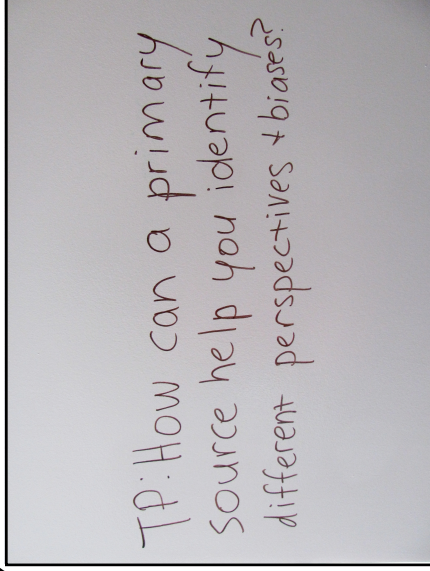 TP: How can a primary
source help you identify
different perspectives + biases?